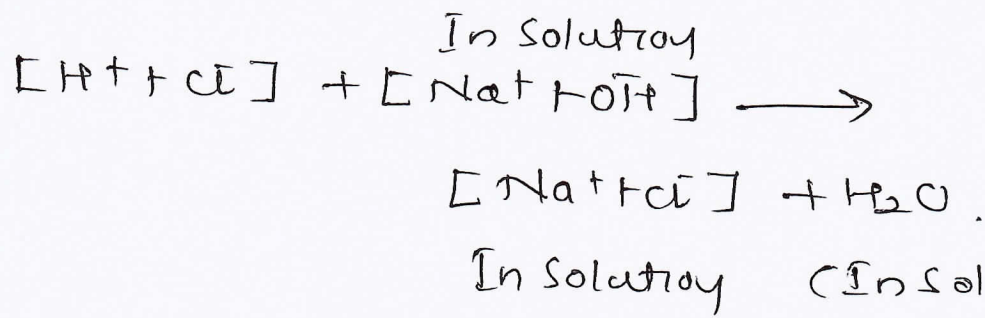 In Solution
[H⁺ + Cl⁻] + [Na⁺ + OH⁻] ⟶
[Na⁺ + Cl⁻] + H₂O.
In Solution (In Sol